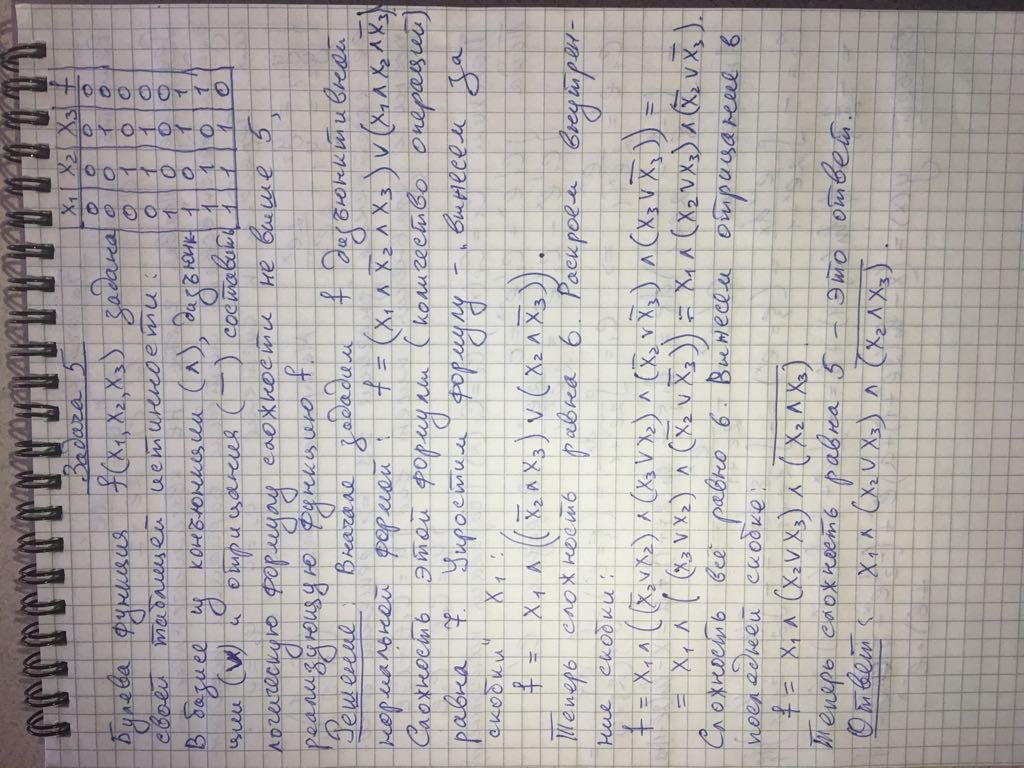 Задача 5
Булева функция f(x₁, x₂, x₃) задана
своей таблицей истинности:
x₁ x₂ x₃ f
0 0 0 0
0 0 1 0
0 1 0 0
0 1 1 0
1 0 0 0
1 0 1 1
1 1 0 1
1 1 1 0
В базисе из конъюнкции (∧), дизъюнк-
ции (∨) и отрицания (‾) составить
логическую формулу сложности не выше 5,
реализующую функцию f.
Решение: Вначале зададим f дизъюнктивной
нормальной формой: f = (x₁ ∧ x̅₂ ∧ x₃) ∨ (x₁ ∧ x₂ ∧ x̅₃)
Сложность этой формулы (количество операций)
равна 7. Упростим формулу – „вынесем за
скобки" x₁:
f = x₁ ∧ ((x̅₂ ∧ x₃) ∨ (x₂ ∧ x̅₃)).
Теперь сложность равна 6. Раскроем внутрен-
ние скобки:
f = x₁ ∧ ((x̅₂ ∨ x₂) ∧ (x₃ ∨ x₂) ∧ (x̅₂ ∨ x̅₃) ∧ (x₃ ∨ x̅₃)) =
= x₁ ∧ ((x₃ ∨ x₂) ∧ (x̅₂ ∨ x̅₃)) = x₁ ∧ (x₂ ∨ x₃) ∧ (x̅₂ ∨ x̅₃).
Сложность всё равно 6. Вынесем отрицание в
последней скобке:
f = x₁ ∧ (x₂ ∨ x₃) ∧ \overline{(x₂ ∧ x₃)}
Теперь сложность равна 5 – это ответ.
Ответ: x₁ ∧ (x₂ ∨ x₃) ∧ \overline{(x₂ ∧ x₃)}.